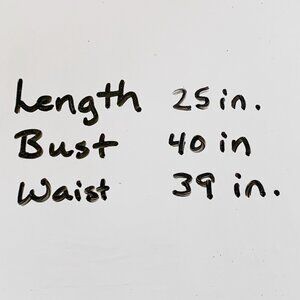 Length 25 in.
Bust 40 in
Waist 39 in.